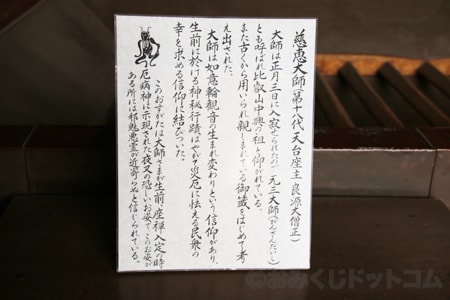 慈恵大師(第十八代天台座主 良源大僧正)
大師は正月三日に入寂されたので元三大師(がんさんだいし)
とも呼ばれ比叡山中興の祖と仰がれている。
また古くから用いられ親しまれている御籤をはじめて考
え出された。
大師は如意輪観音の生まれ変わりという信仰があり、
生前に於ける神秘行蹟はやがて災厄に怯える民衆の
幸を求める信仰に結びついた。
このおすがたは大師さまが生前、座禅入定の時
厄病神に示現された夜叉の恐しいお姿で、このお姿が
ある所には邪魅悪霊が近寄らぬと信じられている。
©おみくじドットコム